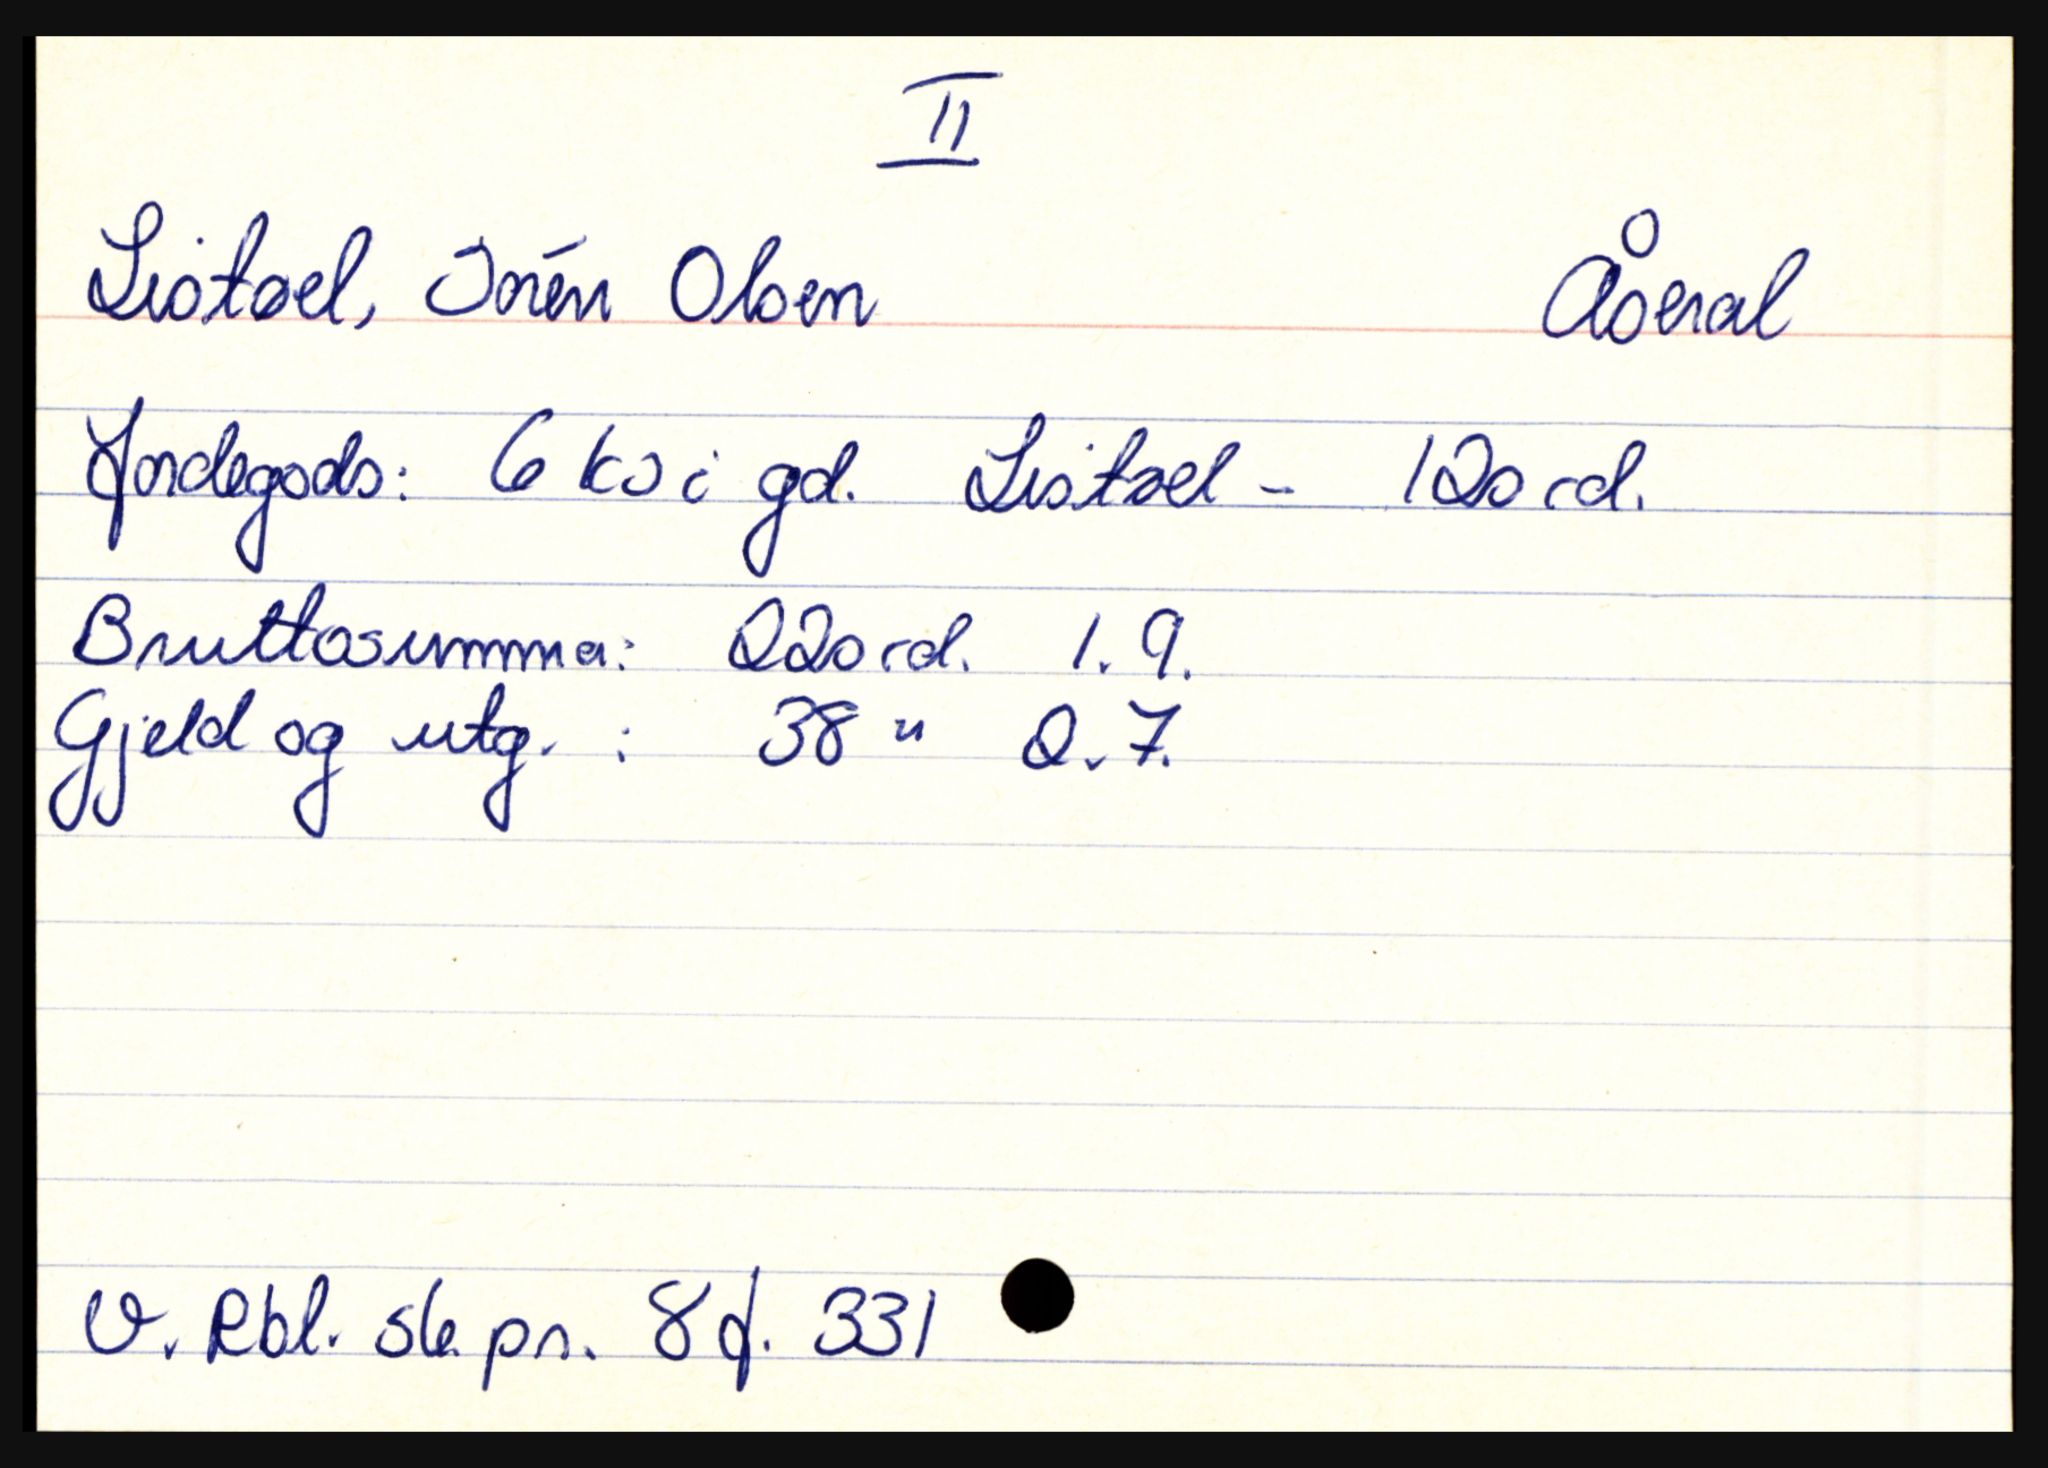 II
Listøel, Sorén Olsen Åseral
Jordegods: 6 ks i gd. Listøel - 120 rd.
Bruttosumma: 220 rd. 1. 9.
Gjeld og utg. : 38 " 2. 7.
V. Rbl. sk. pr. 8 f. 331